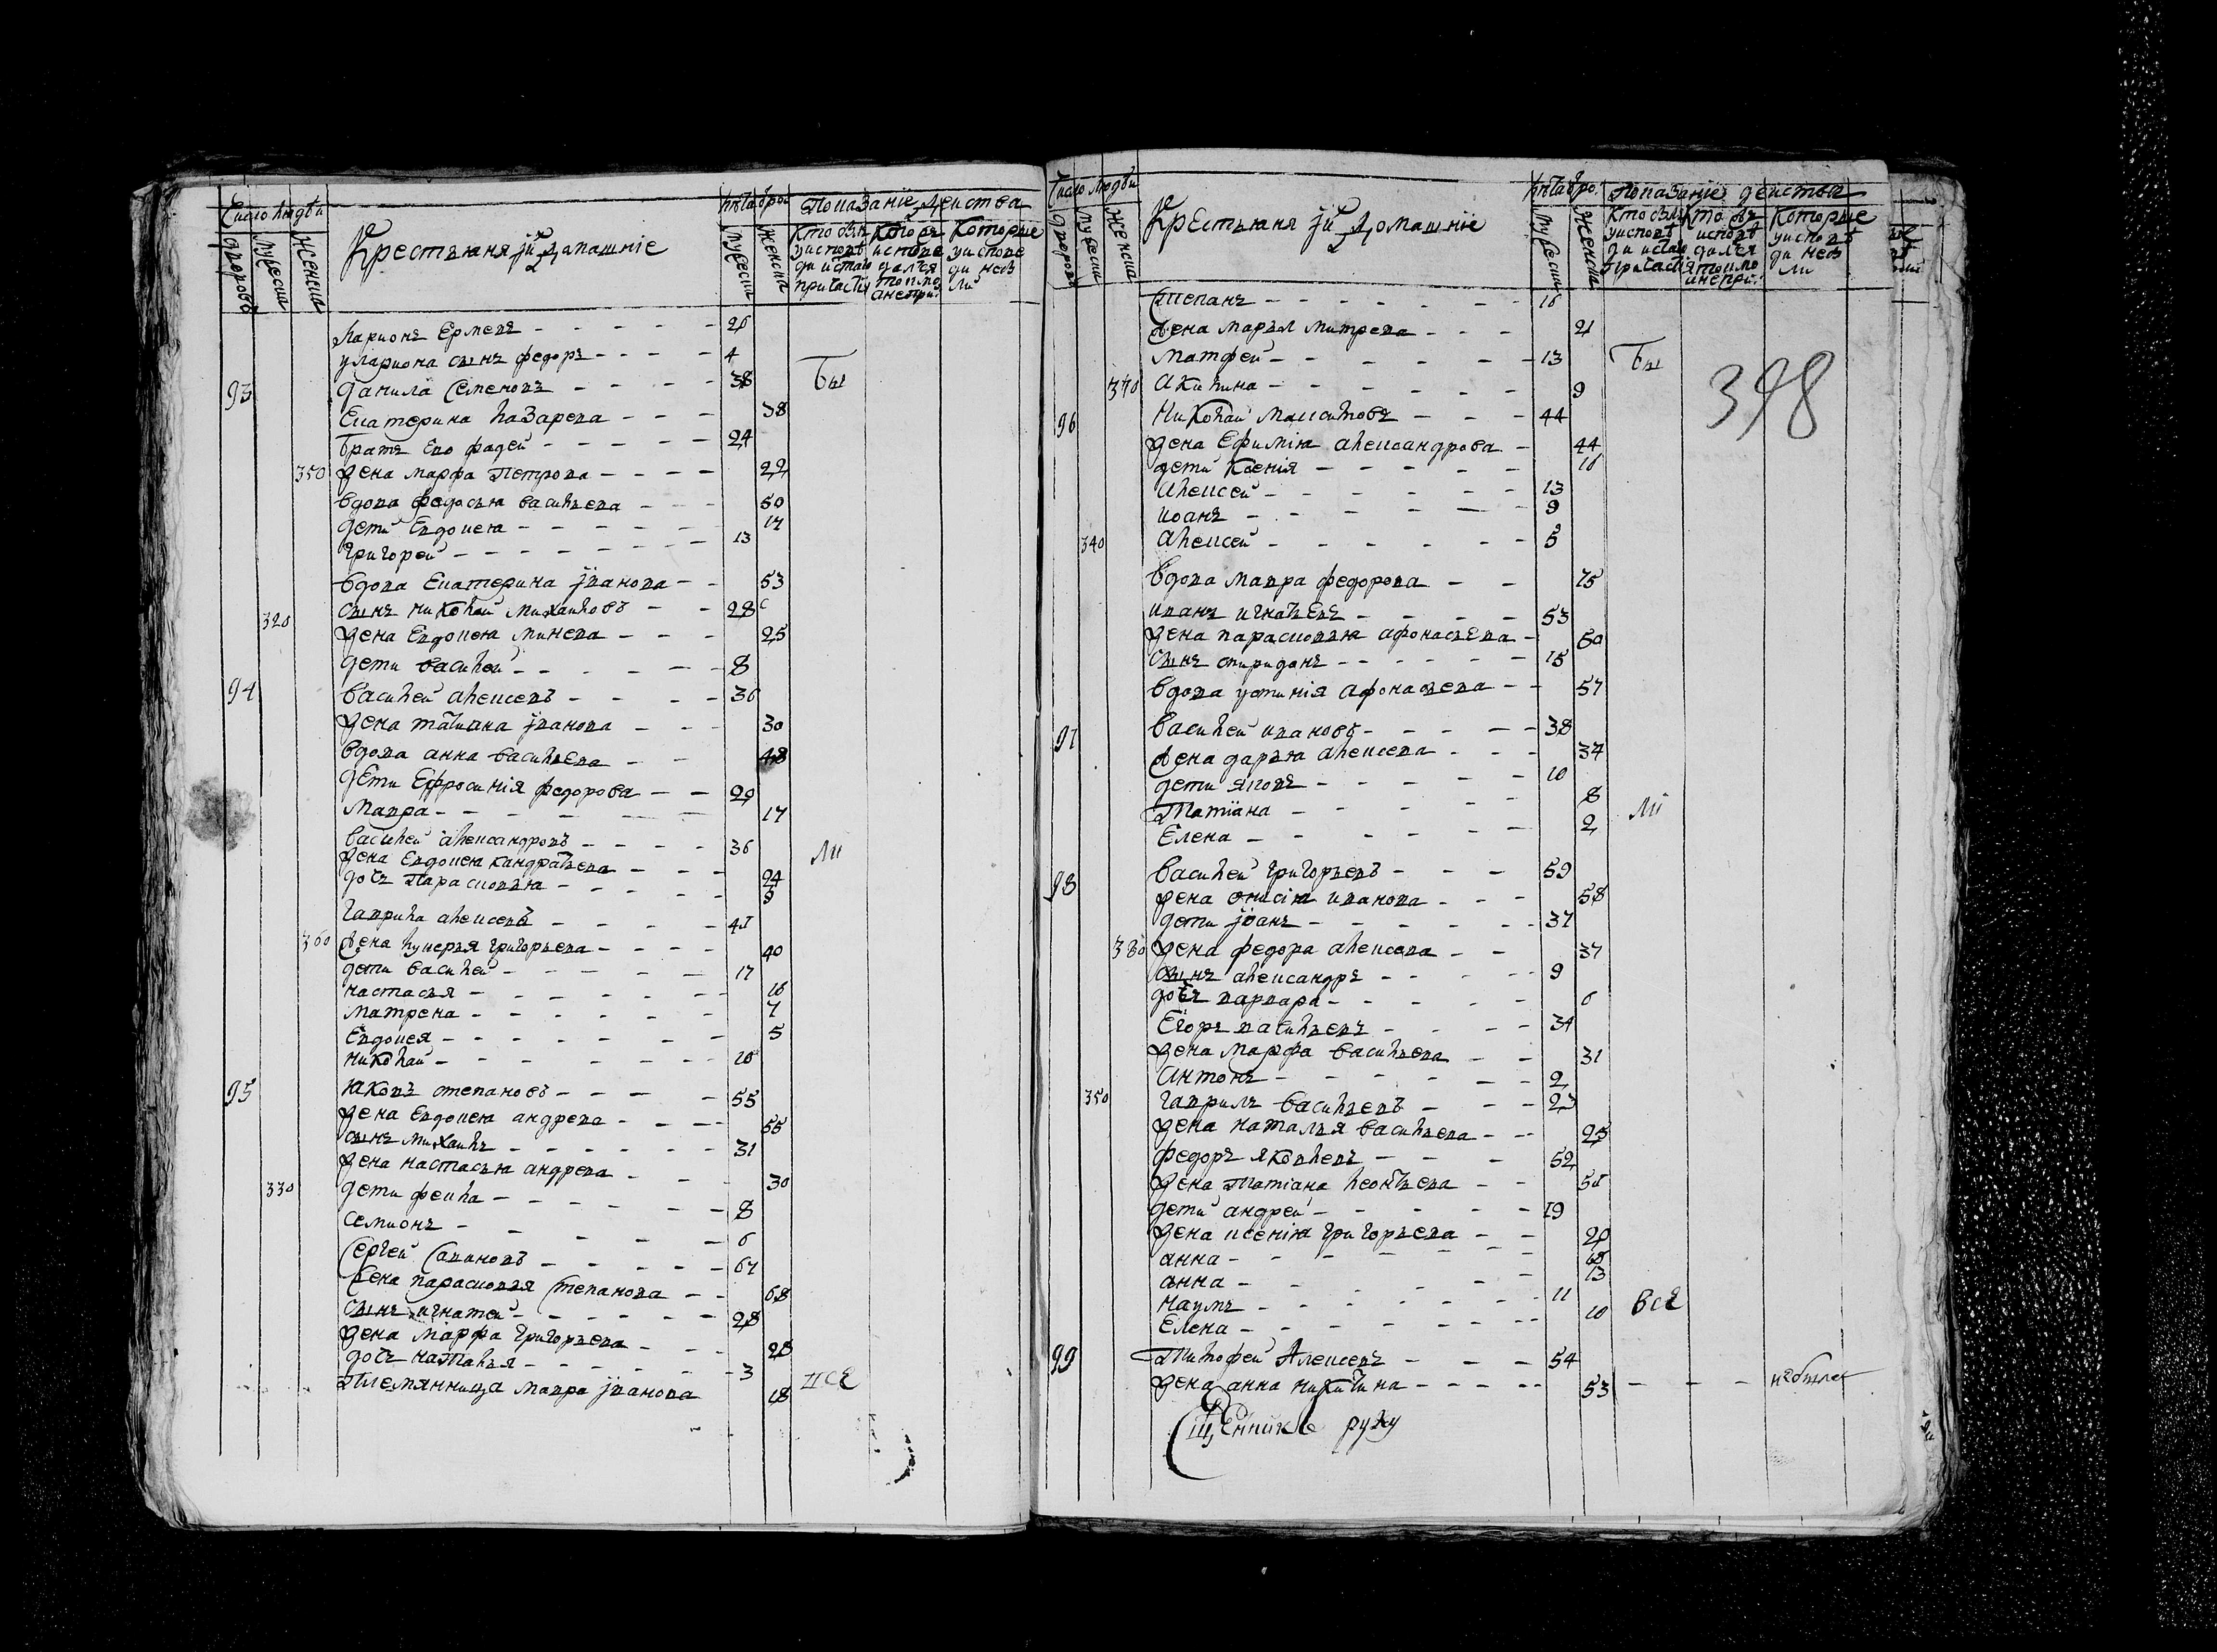 Число людѣи
дворовъ
мужеска
женска
Крестьяня и ихъ домашнiе
лѣта ѿ рож
мужеска
женска
Показанiе дѣиства
Кто былъ у исповѣди и с. таго причастия
Кто былъ у исповедался токмо а не при:
Которые у исповеди не были
Ларионъ Ермевъ - - - - - 26
у лариона сынъ федоръ - - - - 4
93 данила Семеновъ - - - - 38 Бы
Екатерина лазарева - - - 38
братъ его фадей - - - - - 24
350 жена марфа Петрова - - - - 22
вдова федосья васильева - - - 50
дети Евдокея - - - - - - 17
григорей - - - - - - - 13
вдова Екатерина іванова - - 53
320 сынъ николай михаиловъ - - 28
жена Евдокея минева - - - 25
дети василей - - - - - 8
94 василей алексевъ - - - - 36
жена татиана іванова - - - 30
вдова анна васильева - - 48
дети Ефросинiя федорова - - 29
мавра - - - - - - 17
василей александровъ - - - - 36 ли
жена Евдокея кандратьева - - - 24
дочь Парасковья - - - - - 3
гаврила алексевъ - - - - 41
360 жена лукерья григорьева - - - - 40
дети василей - - - - - 17
настасья - - - - - - 16
матрена - - - - - - 7
Евдокея - - - - - - - 5
николай - - - - - - - 20
95 яковъ степановъ - - - - 55
жена Евдокея андрева - - - - 55
сынъ михаилъ - - - - - - 31
жена настасья андрева - - - 30
330 дети фекла - - - - - - 8
семионъ - - - - - 6
Сергей Савановъ - - - - - 67
жена парасковья Степанова - - 68
сынъ игнатей - - - - - - 28
жена марфа григорьева - - - 28
дочь наталья - - - - - - 3
Племянница мавра іванова 18 все
Число людѣи
дворовъ
мужеска
женска
Крестьяня и ихъ домашнiе
лѣта ѿ ро.
мужеска
женска
Показанiе деиства
398
Степанъ - - - - - - - 16
жена марья митрева - - - 21
матфей - - - - - - - 13 Бы
370 акилина - - - - - - 9
96 николай максимовъ - - - 44
жена Ефимiя александрова - 44
дети Ксенiя - - - - - - 16
алексей - - - - - - 13
иоанъ - - - - - - 9
340 алексей - - - - - - 5
вдова мавра федорова - - 75
иванъ игнатьевъ - - - - - 53
жена парасковья афонасьева - 50
сынъ спиридонъ - - - - - - 15
вдова устинiя афонасьева - - 57
97 василей ивановъ - - - - - 38
жена дарья алексева - - - 37
дети яковъ - - - - - - 10
Татiана - - - - - - 8 ли
Елена - - - - - - 2
98 василей григорьевъ - - - 59
жена онисiя иванова - - - 58
дети іванъ - - - - - - 37
380 жена федора алексева - - 37
сынъ александръ - - - - - 9
дочь варвара - - - - - - 6
Егоръ васильевъ - - - - 34
жена марфа васильева - - 31
антонъ - - - - - - 2
350 гаврилъ васильевъ - - - 23
жена наталья васильева - - 25
федоръ яковлевъ - - - 52
жена Татiана леонтьева - - 51
дети андрей - - - - - 19
жена ксенiя григорьева - - 20
анна - - - - - - 18
анна - - - - - 13
наумъ - - - - - - - 11
Елена - - - - - - - 10 все
99 Тимофей Алексевъ - - - 54
жена анна никитина - - - - - 53 - - - небыла
щенникъ руку